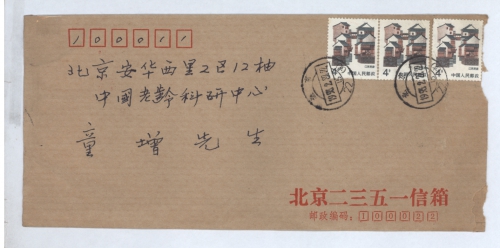 100011
北京安华西里2区12楼
中国老龄科研中心
童增先生
4分
中国人民邮政
中国人民邮政
中国人民邮政
北京二三五一信箱
邮政编码：100022